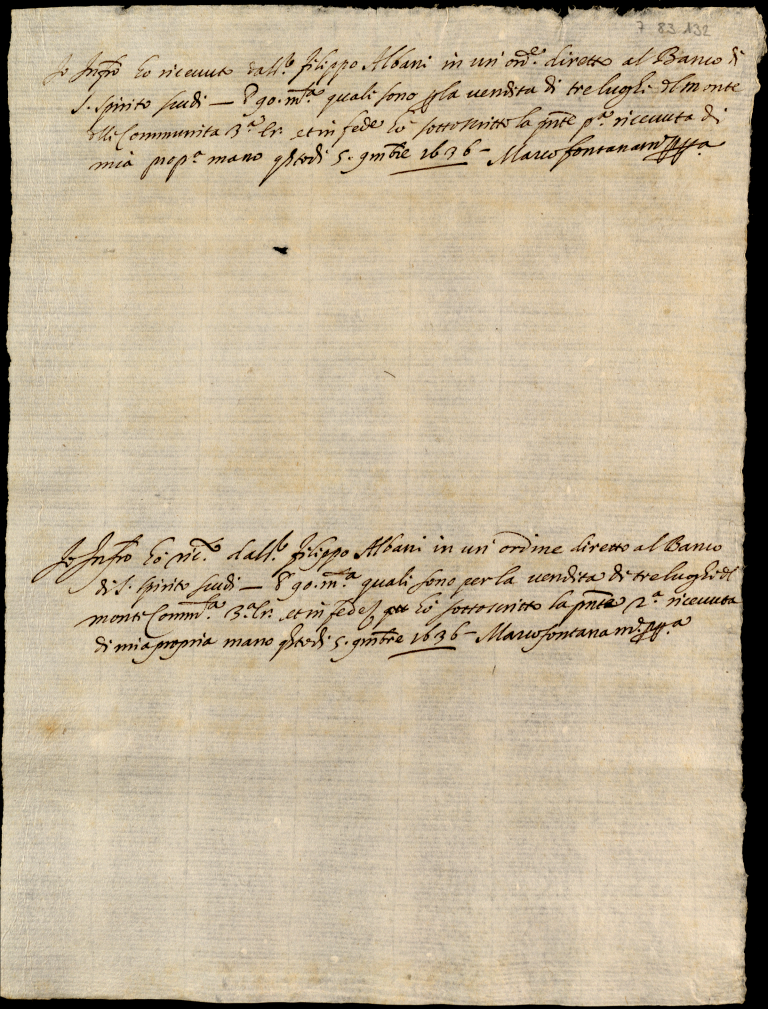 7 83 132
Io Infro ho riceuuto dall. filippo Albani in un' ord.e diretto al Banco di
S. Spirito scudi — 90. m.ta quali sono p la uendita di tre luoghi dl monte
dlle Communita 3.a et in fede hò sottoscritto la pnte p.a riceuuta di
mia prop.a mano qsto di 5. 9mbre 1636 - Marco fontana m.o pp.a
Io Infro hò ric.to dall. filippo Albani in un' ordine diretto al Banco
di S. spirito scudi — 90. m.ta quali sono per la uendita di tre luoghi dl
monte Comm.ta 3.a et in fede hò sottoscritto la pnte 2.a riceuuta
di mia propria mano qsto di 5. 9mbre 1636 - Marco fontana m.o pp.a